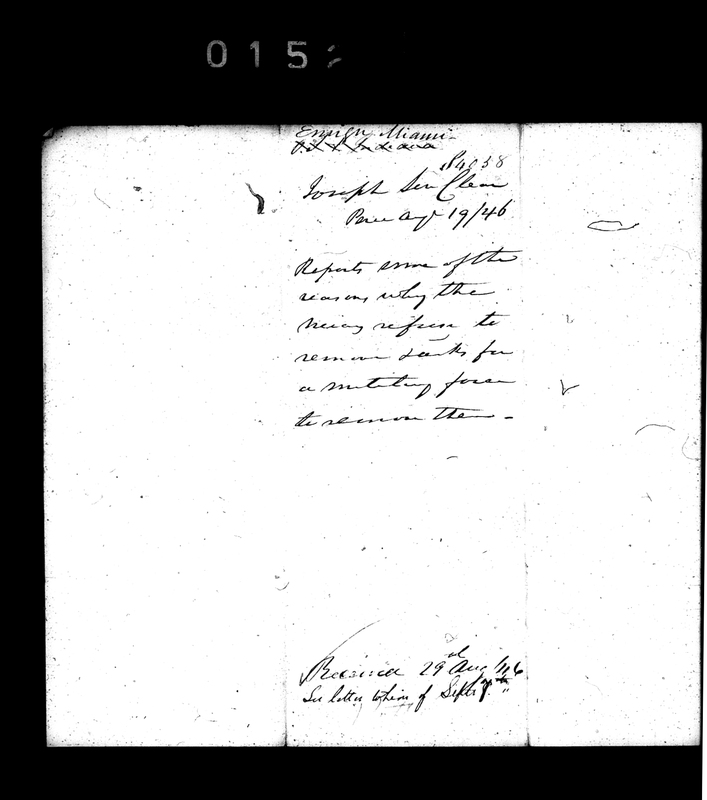 0152
Emign. Miami
Indiana
S4058
Joseph Sinclear
Peru Aug 19/46
Reports some of the
reasons why the
refuse to
remove & asks for
a military force
to remove them -
Received 29 Aug /46
See letter to him of Septr